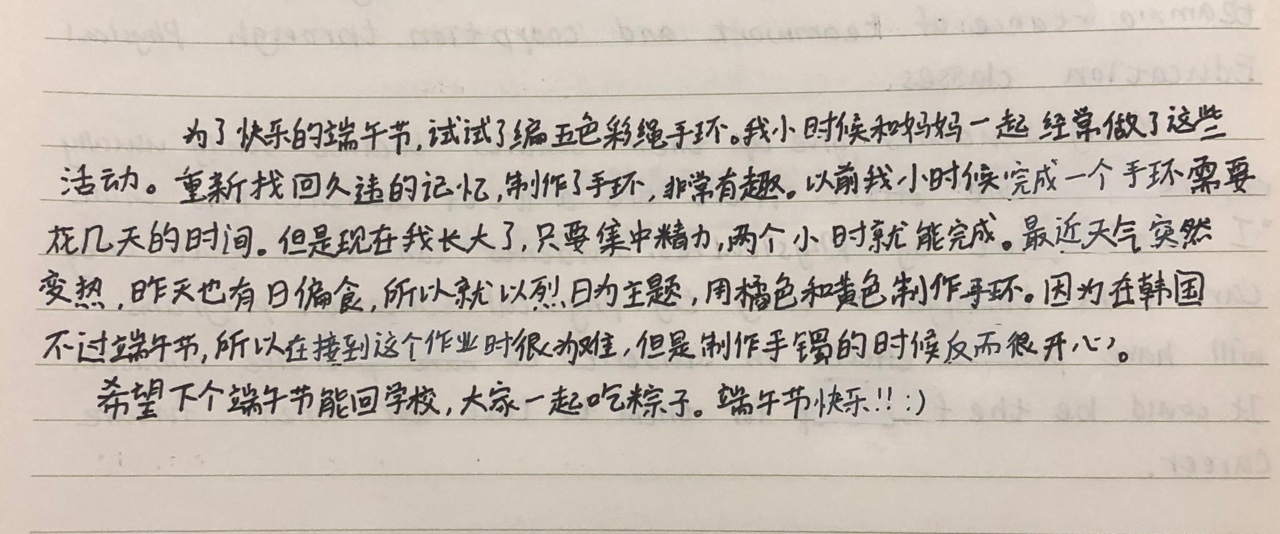 为了快乐的端午节,试试了编五色彩绳手环。我小时候和妈妈一起经常做了这些
活动。重新找回久违的记忆,制作了手环,非常有趣。以前我小时候完成一个手环需要
花几天的时间。但是现在我长大了,只要集中精力,两个小时就能完成。最近天气突然
变热,昨天也有日偏食,所以就以烈日为主题,用橘色和黄色制作手环。因为在韩国
不过端午节,所以在接到这个作业时很为难,但是制作手镯的时候反而很开心。
希望下个端午节能回学校,大家一起吃粽子。端午节快乐!! :)